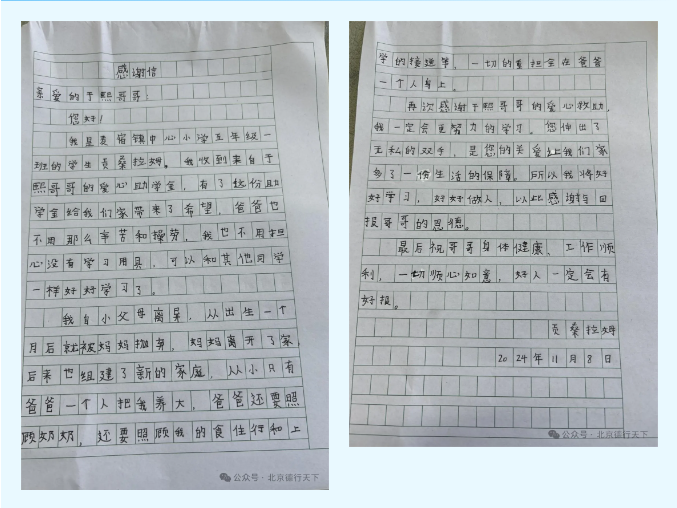 感谢信
亲爱的于熙哥哥:
您好!
我是贡宿镇中心小学五年级一
班的学生贡桑拉姆。我收到来自于
熙哥哥的爱心助学金,有了这份助
学金给我们家带来了希望,爸爸也
不用那么辛苦和操劳,我也不用担
心没有学习用具,可以和其他同学
一样好好学习了。
我自小父母离异,从出生一个
月后就被妈妈抛弃,妈妈离开了家,
后来也组建了新的家庭,从小只有
爸爸一个人把我养大,爸爸还要照
顾奶奶,还要照顾我的食住行和上
公众号·北京德行天下
学的接送等,一切的重担全在爸爸
一个人身上。
再次感谢于熙哥哥的爱心救助,
我一定会更努力的学习。您伸出了
无私的双手,是您的关爱让我们家
多了一份生活的保障。所以我将好
好学习,好好做人,以此感谢与回
报哥哥的恩德。
最后祝哥哥身体健康、工作顺
利,一切顺心如意,好人一定会有
好报。
贡桑拉姆
2024年11月8日
公众号·北京德行天下